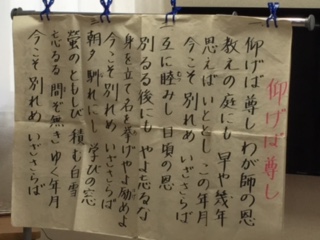 仰げば尊し
仰げば 尊し わが師の恩
教えの庭にも 早や幾年
思えば いととし この年月
今こそ 別れめ いざさらば
二 互に睦みし 日頃の恩
別るる後にも やよ忘るな
身を立て 名を挙げ やよ励めよ
今こそ 別れめ いざさらば
三 朝夕 馴れにし 学びの窓
螢のともしび 積む白雪
忘るる 間ぞ無き ゆく年月
今こそ 別れめ いざさらば